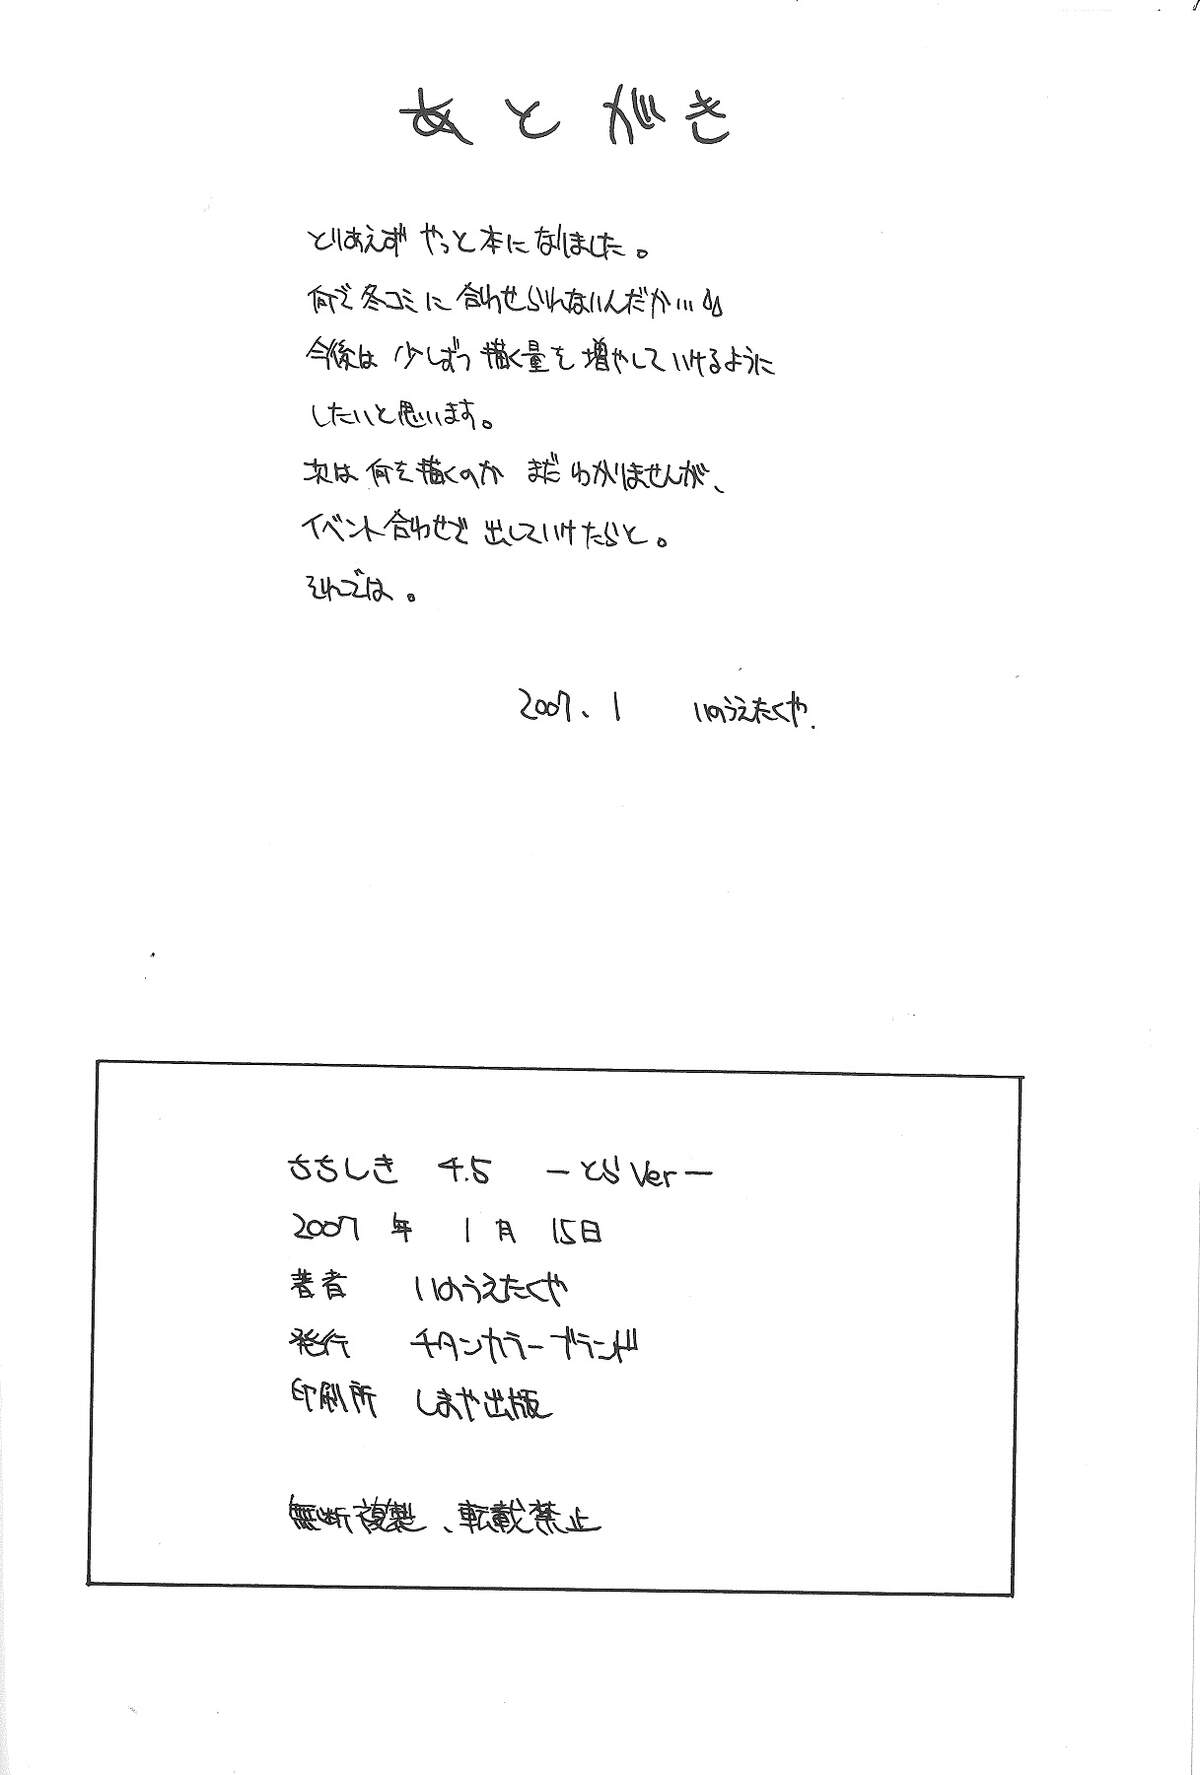 あとがき
とりあえず やっと本になりました。
何で冬コミに 合わせられないんだか…
今後は 少しずつ 描く量を 増やしていけるように
したいと思います。
次は 何を描くのか まだ わかりませんが、
イベント合わせで 出していけたらと。
それでは。
2007.1 いのうえたくや.
ささしき 4.5 ーとらVerー
2007 年 1 月 15日
著者 いのうえたくや
発行 チタンカラーブランド
印刷所 しまや出版
無断複製、転載禁止